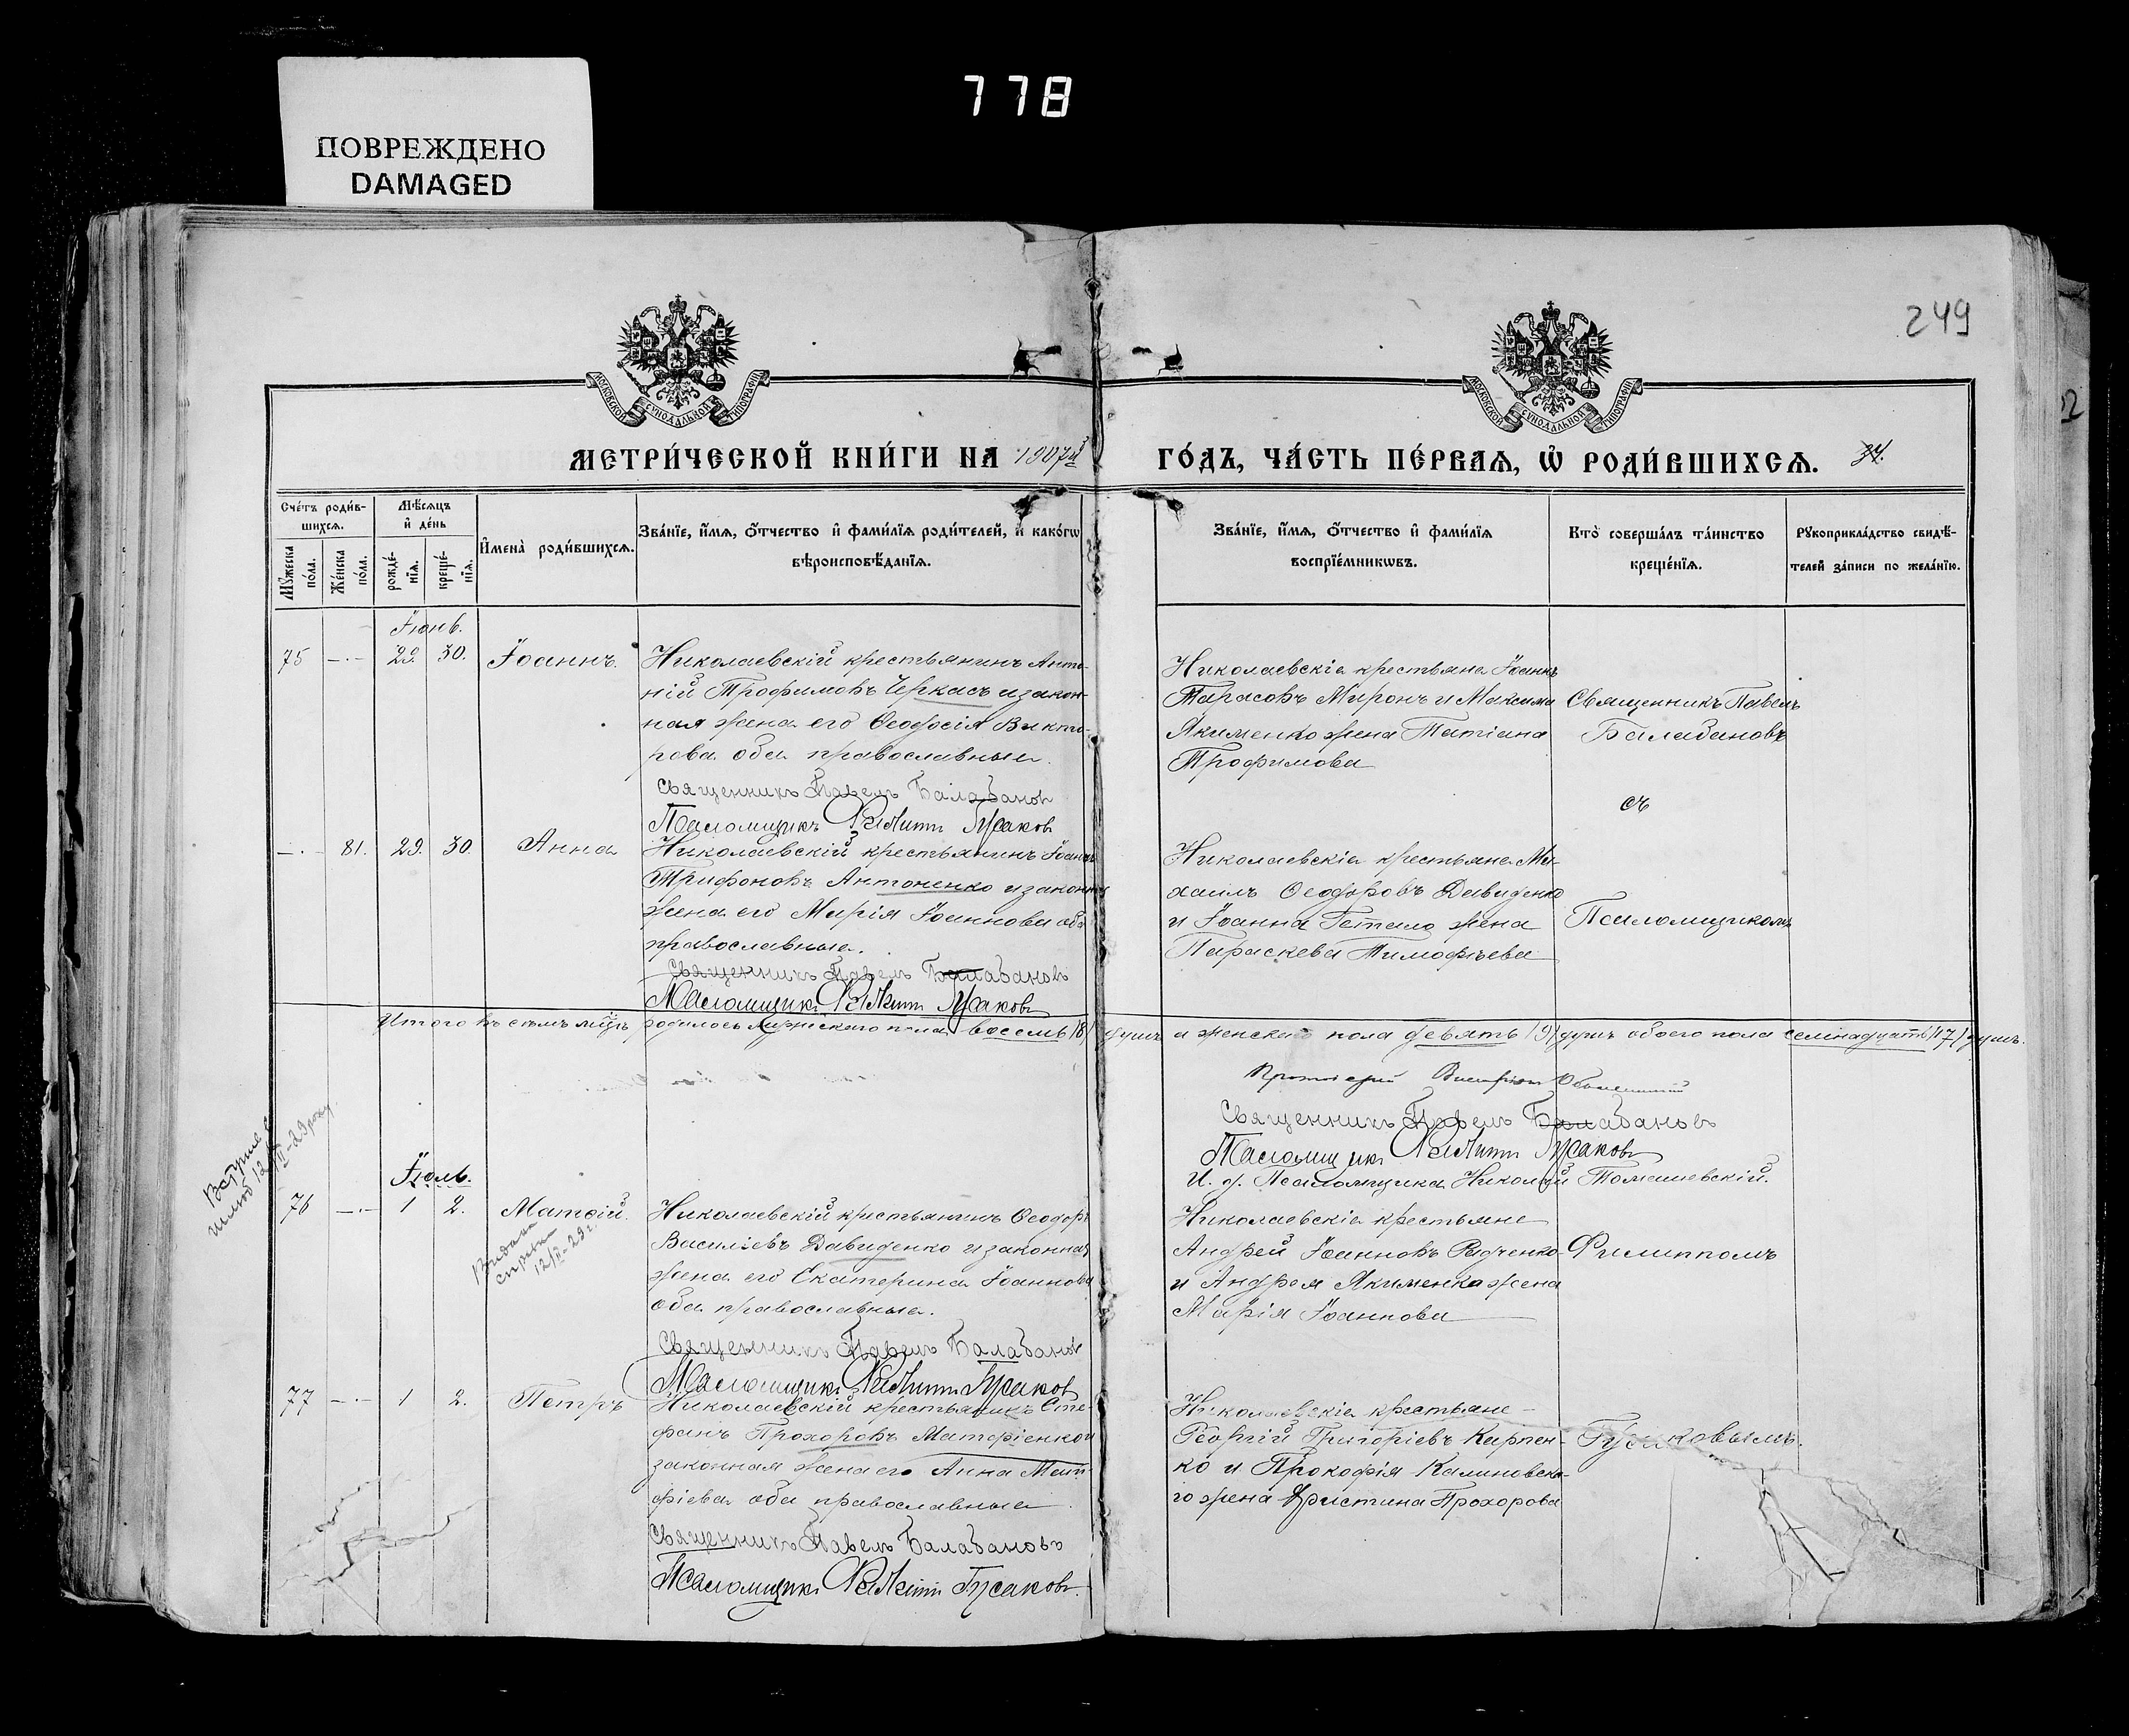 778
ПОВРЕЖДЕНО
DAMAGED
249
МОСКОВСКОЙ СѴНОДАЛЬНОЙ ТИПОГРАФІИ
МОСКОВСКОЙ СѴНОДАЛЬНОЙ ТИПОГРАФІИ
МЕТРИ́ЧЕСКОЙ КНИ́ГИ НА 1907й ГО́ДЪ, ЧА́СТЬ ПЕ́РВАѦ, Ѡ҆ РОДИ́ВШИХСѦ. 34.
Сче́тъ роди́в-
шихсѧ.
Мѣ́сѧцъ
и҆ де́нь
Мꙋ́жеска
по́ла.
Же́нска
по́ла.
рожде́-
нїѧ.
креще́-
нїѧ.
И҆мена̀ роди́вшихсѧ.
Зва́нїе, и҆́мѧ, ѻ҆́тчество и҆ фами́лїѧ роди́телей, и҆ како́гѡ
вѣроисповѣ́данїѧ.
Зва́нїе, и҆́мѧ, ѻ҆́тчество и҆ фами́лїѧ
воспрїе́мникѡвъ.
Кто̀ соверша́лъ та́инство
креще́нїѧ.
Рꙋкоприкла́дство свидѣ́-
телей за́писи по жела́нїю.
Іюнь.
75 —·— 29. 30. Іоаннъ.
Николаевскій крестьянинъ Анто-
ній Трофимовъ Черкасъ и закон-
ная жена его Ѳеодосія Викто-
рова оба православные.
Священникъ Павелъ Балабановъ
Псаломщикъ Филиппъ Гусаковъ
Николаевскіе крестьяне Іоаннъ
Тарасовъ Миронъ и Максима
Якименко жена Татіана
Трофимова
Священникъ Павелъ
Балабановъ
съ
—·— 81. 29. 30. Анна
Николаевскій крестьянинъ Іоаннъ
Трифоновъ Антоненко и законная
жена его Марія Іоаннова оба
православные.
Священникъ Павелъ Балабановъ
Псаломщикъ Филиппъ Гусаковъ
Николаевскіе крестьяне Ми-
хаилъ Ѳеодоровъ Давиденко
и Іоанна Гетало жена
Параскева Тимофѣева
Псаломщикомъ
Итого въ семъ мѣсяцѣ родилось мужскаго пола восемь /8/ душъ и женскаго пола девять /9/ душъ обоего пола семнадцать /17/ душъ.
Протоіерей
Священникъ Павелъ Балабановъ
Псаломщикъ Филиппъ Гусаковъ
И. д. Псаломщика Николай Томашевскій.
шлюб 12/II-29 року.
Іюль.
76 —·— 1 2. Матѳій.
Видана
справка
12/II-29 г.
Николаевскій крестьянинъ Ѳеодоръ
Василіевъ Давиденко и законная
жена его Екатерина Іоаннова
оба православные.
Священникъ Павелъ Балабановъ
Псаломщикъ Филиппъ Гусаковъ
Николаевскіе крестьяне
Андрей Іоанновъ Радченко
и Андрея Якименка жена
Марія Іоаннова
Филиппомъ
77 —·— 1 2. Петръ
Николаевскій крестьянинъ Сте-
фанъ Прохоровъ Матфіенко и
законная жена его Анна Мат-
фіева оба православные.
Священникъ Павелъ Балабановъ
Псаломщикъ Филиппъ Гусаковъ.
Николаевскіе крестьяне
Георгій Григоріевъ Карпен-
ко и Прокофія Калиновска-
го жена Христина Прохорова
Гусаковымъ.